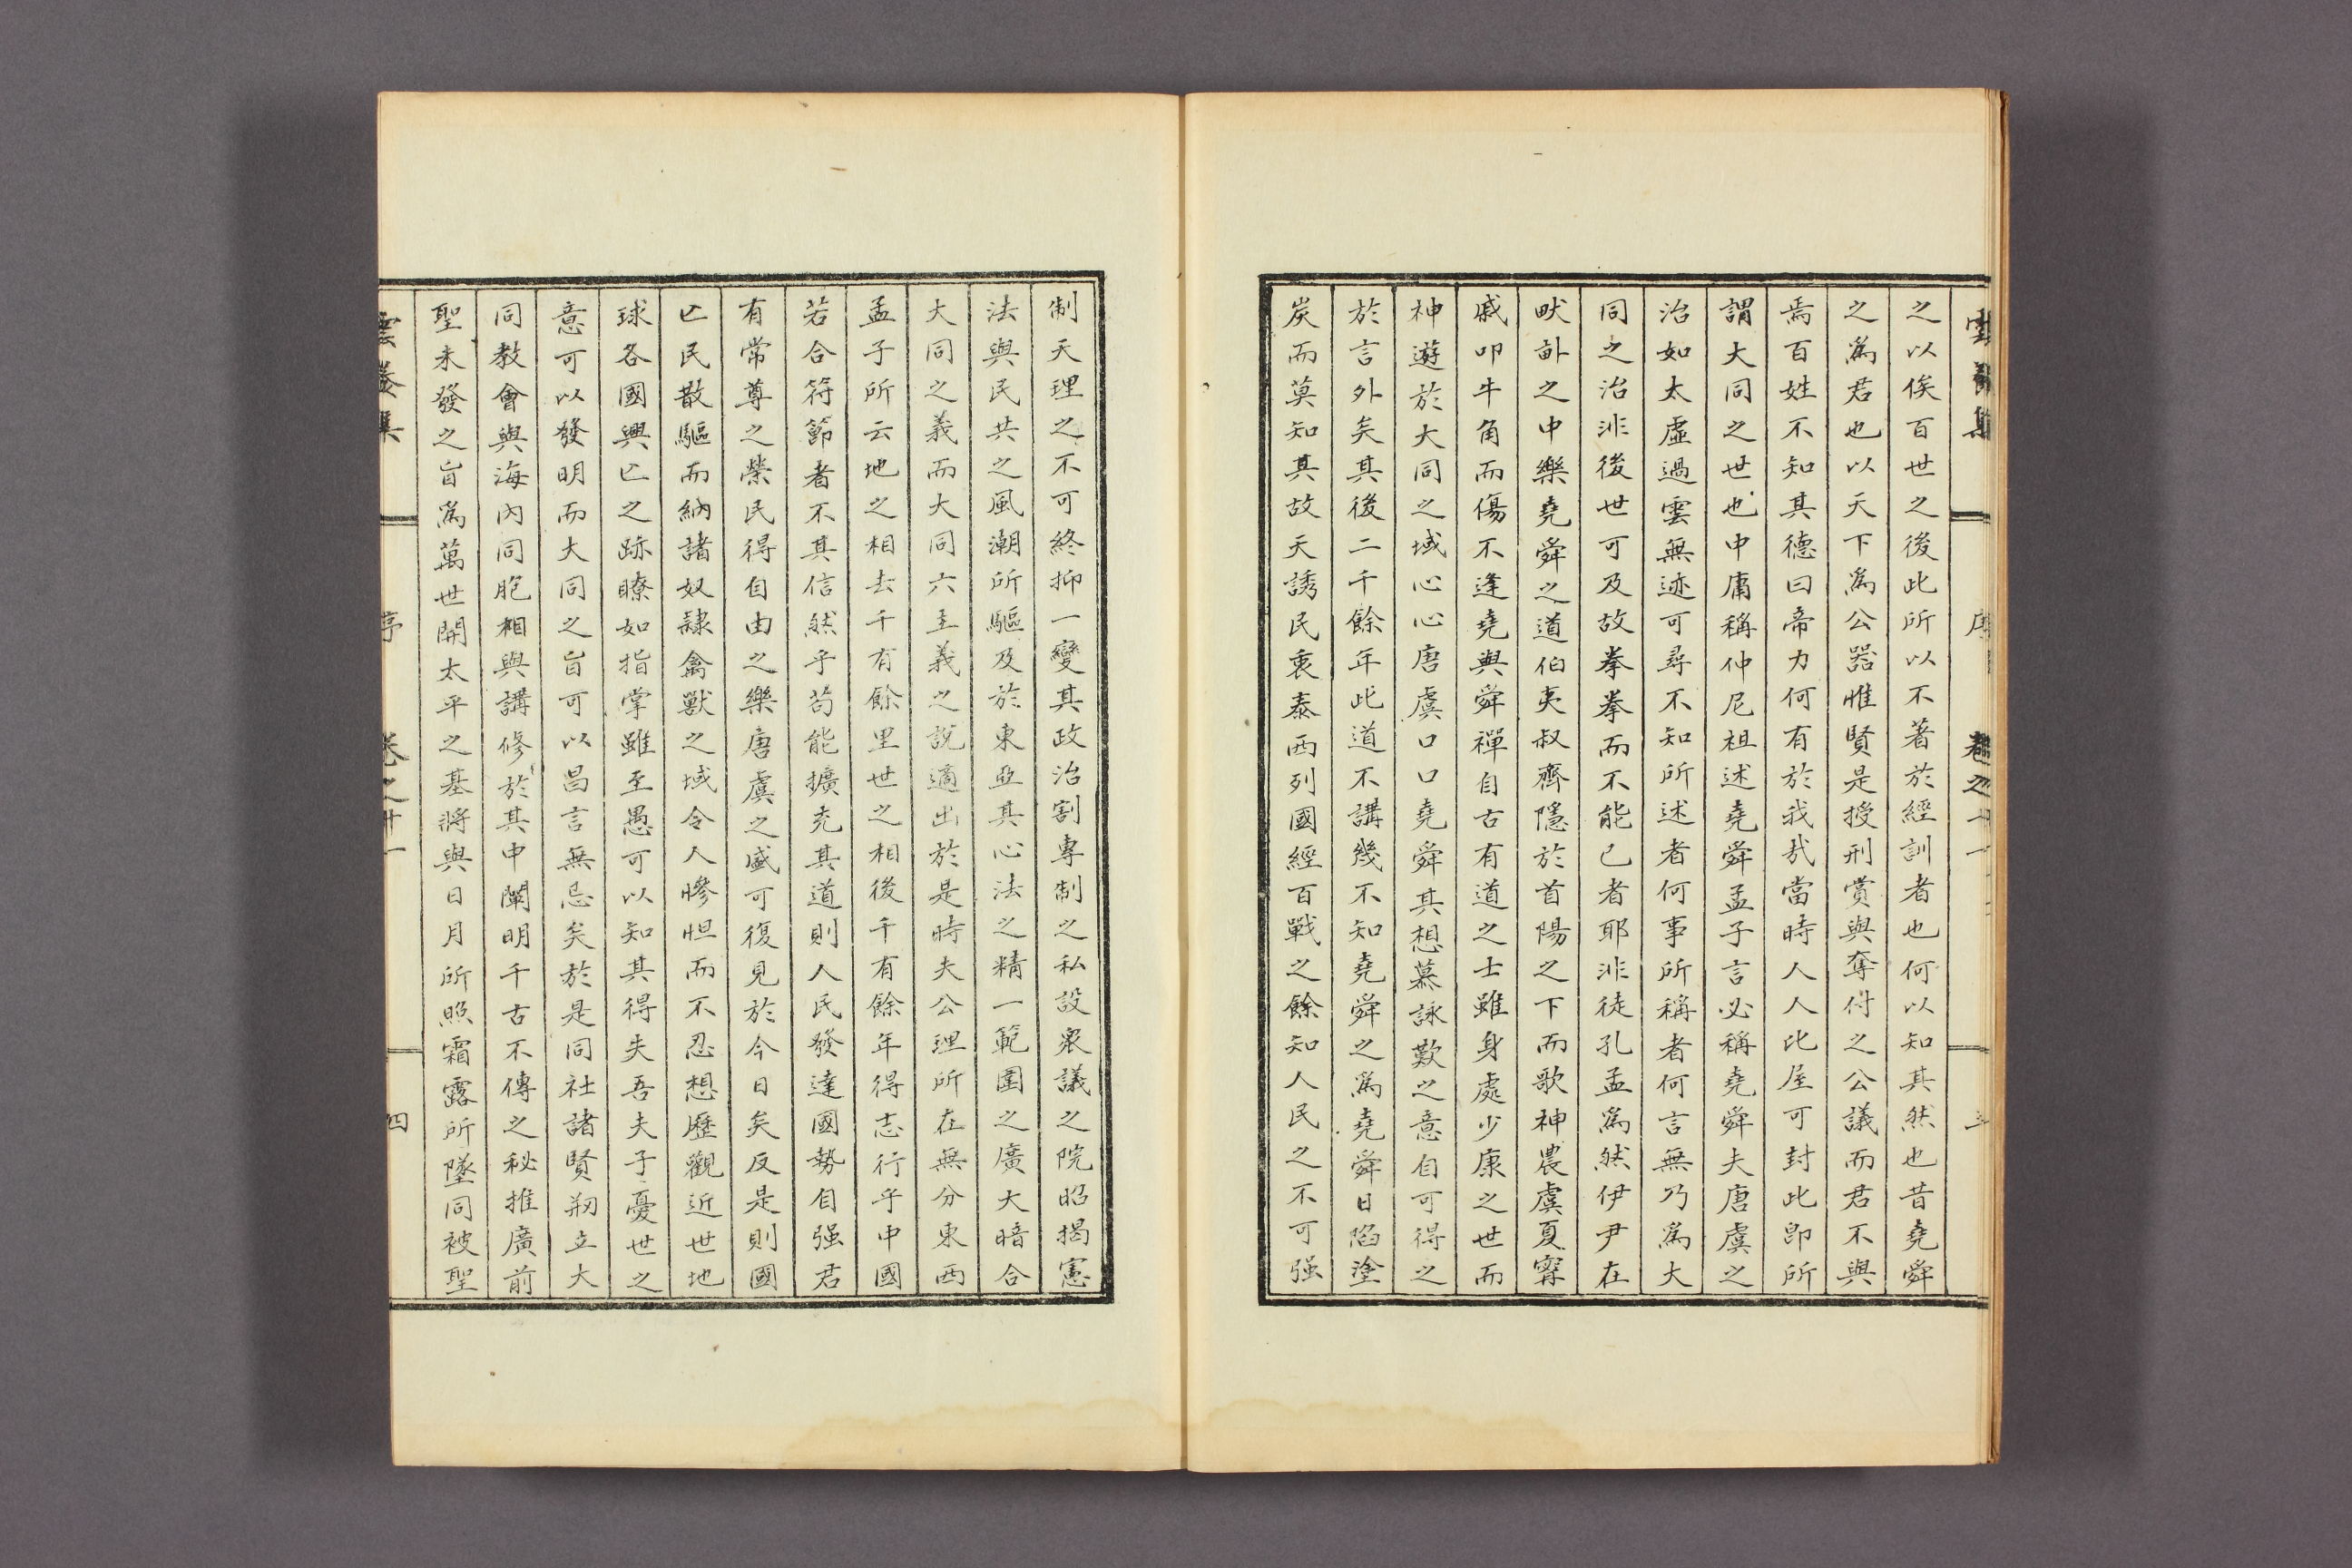 之以俟百世之後此所以不著於經訓者也何以知其然也昔堯舜
之爲君也以天下爲公器惟賢是授刑賞與奪付之公議而君不與
焉百姓不知其德曰帝力何有於我㢤當時人人比屋可封此卽所
謂大同之世也中庸稱仲尼祖述堯舜孟子言必稱堯舜夫唐虞之
治如太虛過雲無迹可尋不知所述者何事所稱者何言無乃爲大
同之治非後世可及故拳拳而不能已者耶非徒孔孟爲然伊尹在
畎畝之中樂堯舜之道伯夷叔齊隱於首陽之下而歌神農虞夏甯
戚叩牛角而傷不逢堯與舜禪自古有道之士雖身處少康之世而
神遊於大同之域心心唐虞口口堯舜其想慕詠歎之意自可得之
於言外矣其後二千餘年此道不講幾不知堯舜之爲堯舜日陷塗
炭而莫知其故天誘民衷泰西列國經百戰之餘知人民之不可强
制天理之不可終抑一變其政治割專制之私設衆議之院昭揭憲
法與民共之風潮所驅及於東亞其心法之精一範圍之廣大暗合
大同之義而大同六主義之說適出於是時夫公理所在無分東西
孟子所云地之相去千有餘里世之相後千有餘年得志行乎中國
若合符節者不其信然乎苟能擴充其道則人民發達國勢自强君
有常尊之榮民得自由之樂唐虞之盛可復見於今日矣反是則國
亡民散驅而納諸奴隷禽獸之域令人慘怛而不忍想歷觀近世地
球各國興亡之跡瞭如指掌雖至愚可以知其得失吾夫子憂世之
意可以發明而大同之旨可以昌言無忌矣於是同社諸賢刱立大
同教會與海內同胞相與講修於其中闡明千古不傳之秘推廣前
聖未發之旨爲萬世開太平之基將與日月所照霜露所墜同被聖
序 卷之十一 四